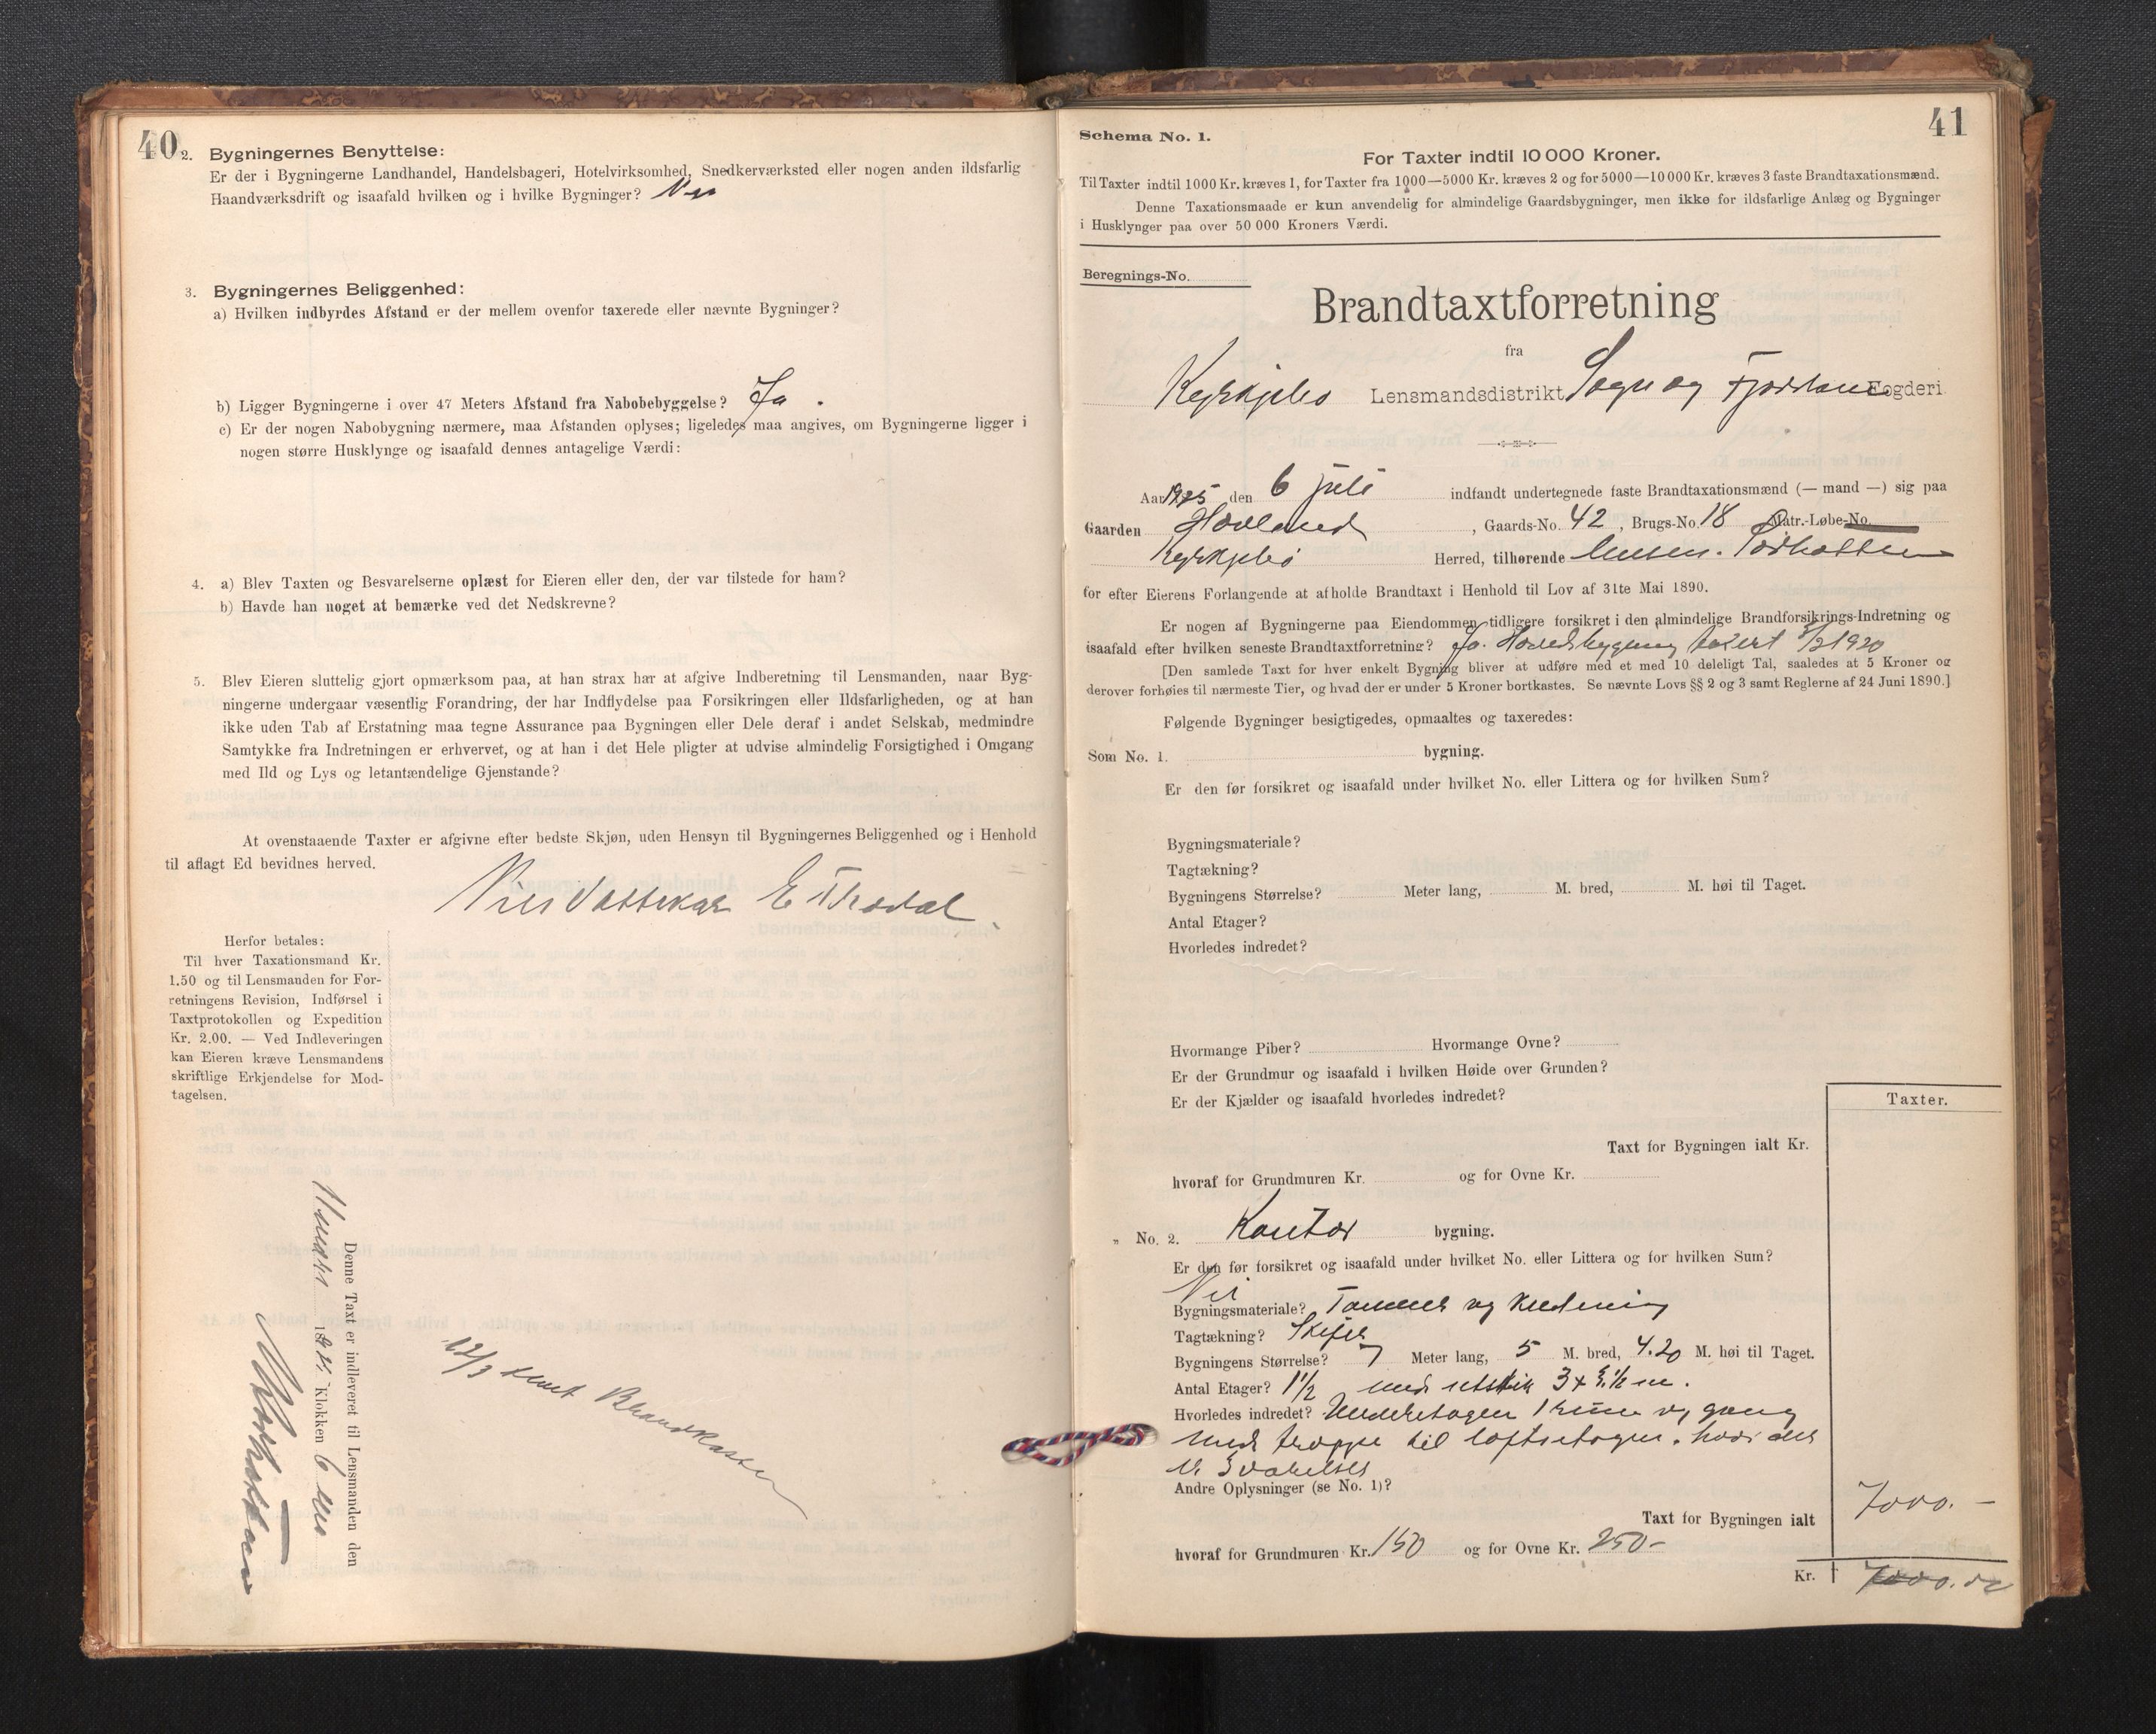 40
2. Bygningernes Benyttelse:
Er der i Bygningerne Landhandel, Handelsbageri, Hotelvirksomhed, Snedkerværksted eller nogen anden ildsfarlig
Haandværksdrift og isaafald hvilken og i hvilke Bygninger?
3. Bygningernes Beliggenhed:
a) Hvilken indbyrdes Afstand er der mellem ovenfor taxerede eller nævnte Bygninger?
b) Ligger Bygningerne i over 47 Meters Afstand fra Nabobebyggelse? Ja.
c) Er der nogen Nabobygning nærmere, maa Afstanden oplyses; ligeledes maa angives, om Bygningerne ligger i
nogen større Husklynge og isaafald dennes antagelige Værdi:
4. a) Blev Taxten og Besvarelserne oplæst for Eieren eller den, der var tilstede for ham?
b) Havde han noget at bemærke ved det Nedskrevne?
5. Blev Eieren sluttelig gjort opmærksom paa, at han strax har at afgive Indberetning til Lensmanden, naar Byg-
ningerne undergaar væsentlig Forandring, der har Indflydelse paa Forsikringen eller Ildsfarligheden, og at han
ikke uden Tab af Erstatning maa tegne Assurance paa Bygningen eller Dele deraf i andet Selskab, medmindre
Samtykke fra Indretningen er erhvervet, og at han i det Hele pligter at udvise almindelig Forsigtighed i Omgang
med Ild og Lys og letantændelige Gjenstande?
At ovenstaaende Taxter er afgivne efter bedste Skjøn, uden Hensyn til Bygningernes Beliggenhed og i Henhold
til aflagt Ed bevidnes herved.
E Thodal
Herfor betales:
Til hver Taxationsmand Kr.
1.50 og til Lensmanden for For-
retningens Revision, Indførsel i
Taxtprotokollen og Expedition
Kr. 2.00. — Ved Indleveringen
kan Eieren kræve Lensmandens
skriftlige Erkjendelse for Mod-
tagelsen.
Denne Taxt er indleveret til Lensmanden den
Klokken 6
12/3 sendt Brandkassen
41
Schema No. 1.
For Taxter indtil 10 000 Kroner.
Til Taxter indtil 1000 Kr. kræves 1, for Taxter fra 1000—5000 Kr. kræves 2 og for 5000—10 000 Kr. kræves 3 faste Brandtaxationsmænd.
Denne Taxationsmaade er kun anvendelig for almindelige Gaardsbygninger, men ikke for ildsfarlige Anlæg og Bygninger
i Husklynger paa over 50 000 Kroners Værdi.
Beregnings-No.
Brandtaxtforretning
fra
Kyrkjebø Lensmandsdistrikt Sogn og Fjordane Fogderi
Aar 1925 den 6 juli indfandt undertegnede faste Brandtaxationsmænd (— mand —) sig paa
Gaarden Hovland, Gaards-No. 42, Brugs-No. 18 Matr.-Løbe-No.
Kyrkjebø Herred, tilhørende
for efter Eierens Forlangende at afholde Brandtaxt i Henhold til Lov af 31te Mai 1890.
Er nogen af Bygningerne paa Eiendommen tidligere forsikret i den almindelige Brandforsikrings-Indretning og
isaafald efter hvilken seneste Brandtaxtforretning? Ja. Hovedbygning taxert 1920
[Den samlede Taxt for hver enkelt Bygning bliver at udføre med et med 10 deleligt Tal, saaledes at 5 Kroner og
derover forhøies til nærmeste Tier, og hvad der er under 5 Kroner bortkastes. Se nævnte Lovs §§ 2 og 3 samt Reglerne af 24 Juni 1890.]
Følgende Bygninger besigtigedes, opmaaltes og taxeredes:
Som No. 1. bygning.
Er den før forsikret og isaafald under hvilket No. eller Littera og for hvilken Sum?
Bygningsmateriale?
Tagtækning?
Bygningens Størrelse? Meter lang, M. bred, M. høi til Taget.
Antal Etager?
Hvorledes indredet?
Hvormange Piber? Hvormange Ovne?
Er der Grundmur og isaafald i hvilken Høide over Grunden?
Er der Kjælder og isaafald hvorledes indredet?
Taxter.
Taxt for Bygningen ialt Kr.
hvoraf for Grundmuren Kr. og for Ovne Kr.
„ No. 2. Kontor bygning.
Er den før forsikret og isaafald under hvilket No. eller Littera og for hvilken Sum?
Nei
Bygningsmateriale? Tømmer og kledning
Tagtækning? Skifer
Bygningens Størrelse? 7 Meter lang, 5 M. bred, 4.20 M. høi til Taget.
Antal Etager? 1 1/2 med utstik 3 x 3 1/2 m.
Hvorledes indredet? Underetagen 1 rum og gang
med trappe til loftsetagen. hvor der
er 3 værelser
Andre Oplysninger (se No. 1)?
Taxt for Bygningen ialt 7000.—
hvoraf for Grundmuren Kr. 150 og for Ovne Kr. 250—
Kr. 7000.00